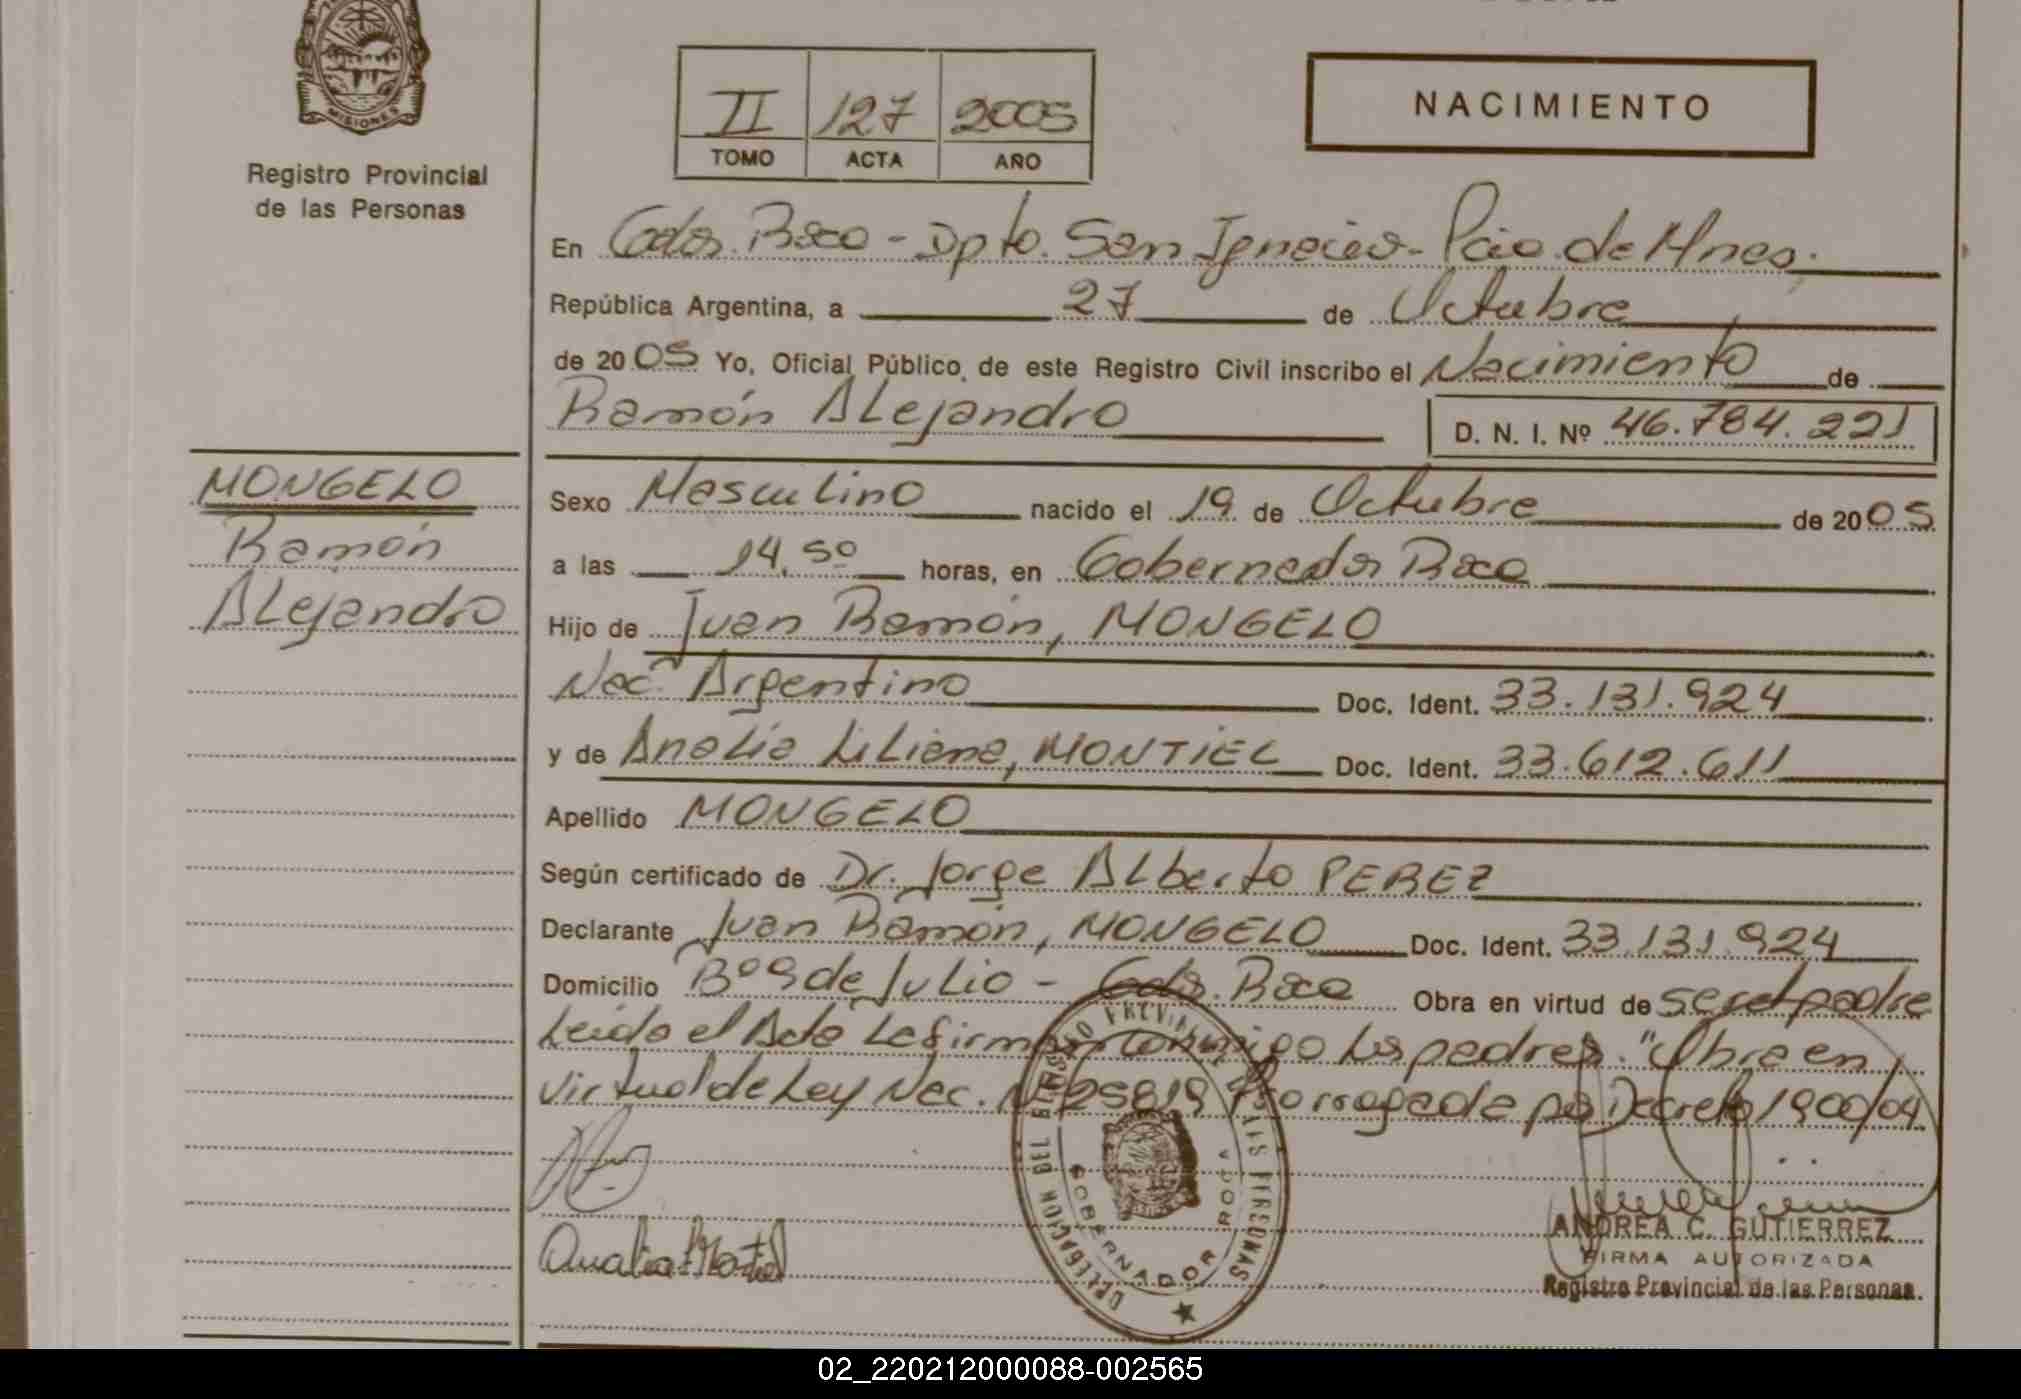 MISIONES
Registro Provincial
de las Personas
II 127 2005
TOMO ACTA AÑO
NACIMIENTO
En Gdor. Roca - Dpto. San Ignacio - Pcia. de Mnes.
República Argentina, a 27 de Octubre
de 2005 Yo, Oficial Público, de este Registro Civil inscribo el Nacimiento de
Ramón Alejandro D. N. I. Nº 46.784.221
MONGELO
Ramón
Alejandro
Sexo Masculino nacido el 19 de Octubre de 2005
a las 14,50 horas, en Gobernador Roca
Hijo de Juan Ramón, MONGELO
Nac. Argentino Doc. Ident. 33.131.924
y de Analía Liliana, MONTIEL Doc. Ident. 33.612.611
Apellido MONGELO
Según certificado de Dr. Jorge Alberto PEREZ
Declarante Juan Ramón, MONGELO Doc. Ident. 33.131.924
Domicilio Bº 9 de Julio - Gdor. Roca Obra en virtud de ser el padre
Leída el Acta La firman conmigo los padres. "Obra en
virtud de Ley Nac. Nº 25819 Prorrogada por Decreto 1900/04
Analia Montiel
DELEGACION DEL REGISTRO PROVINCIAL DE LAS PERSONAS
GOBERNADOR ROCA
ANDREA C. GUTIERREZ
FIRMA AUTORIZADA
Registro Provincial de las Personas
02_220212000088-002565